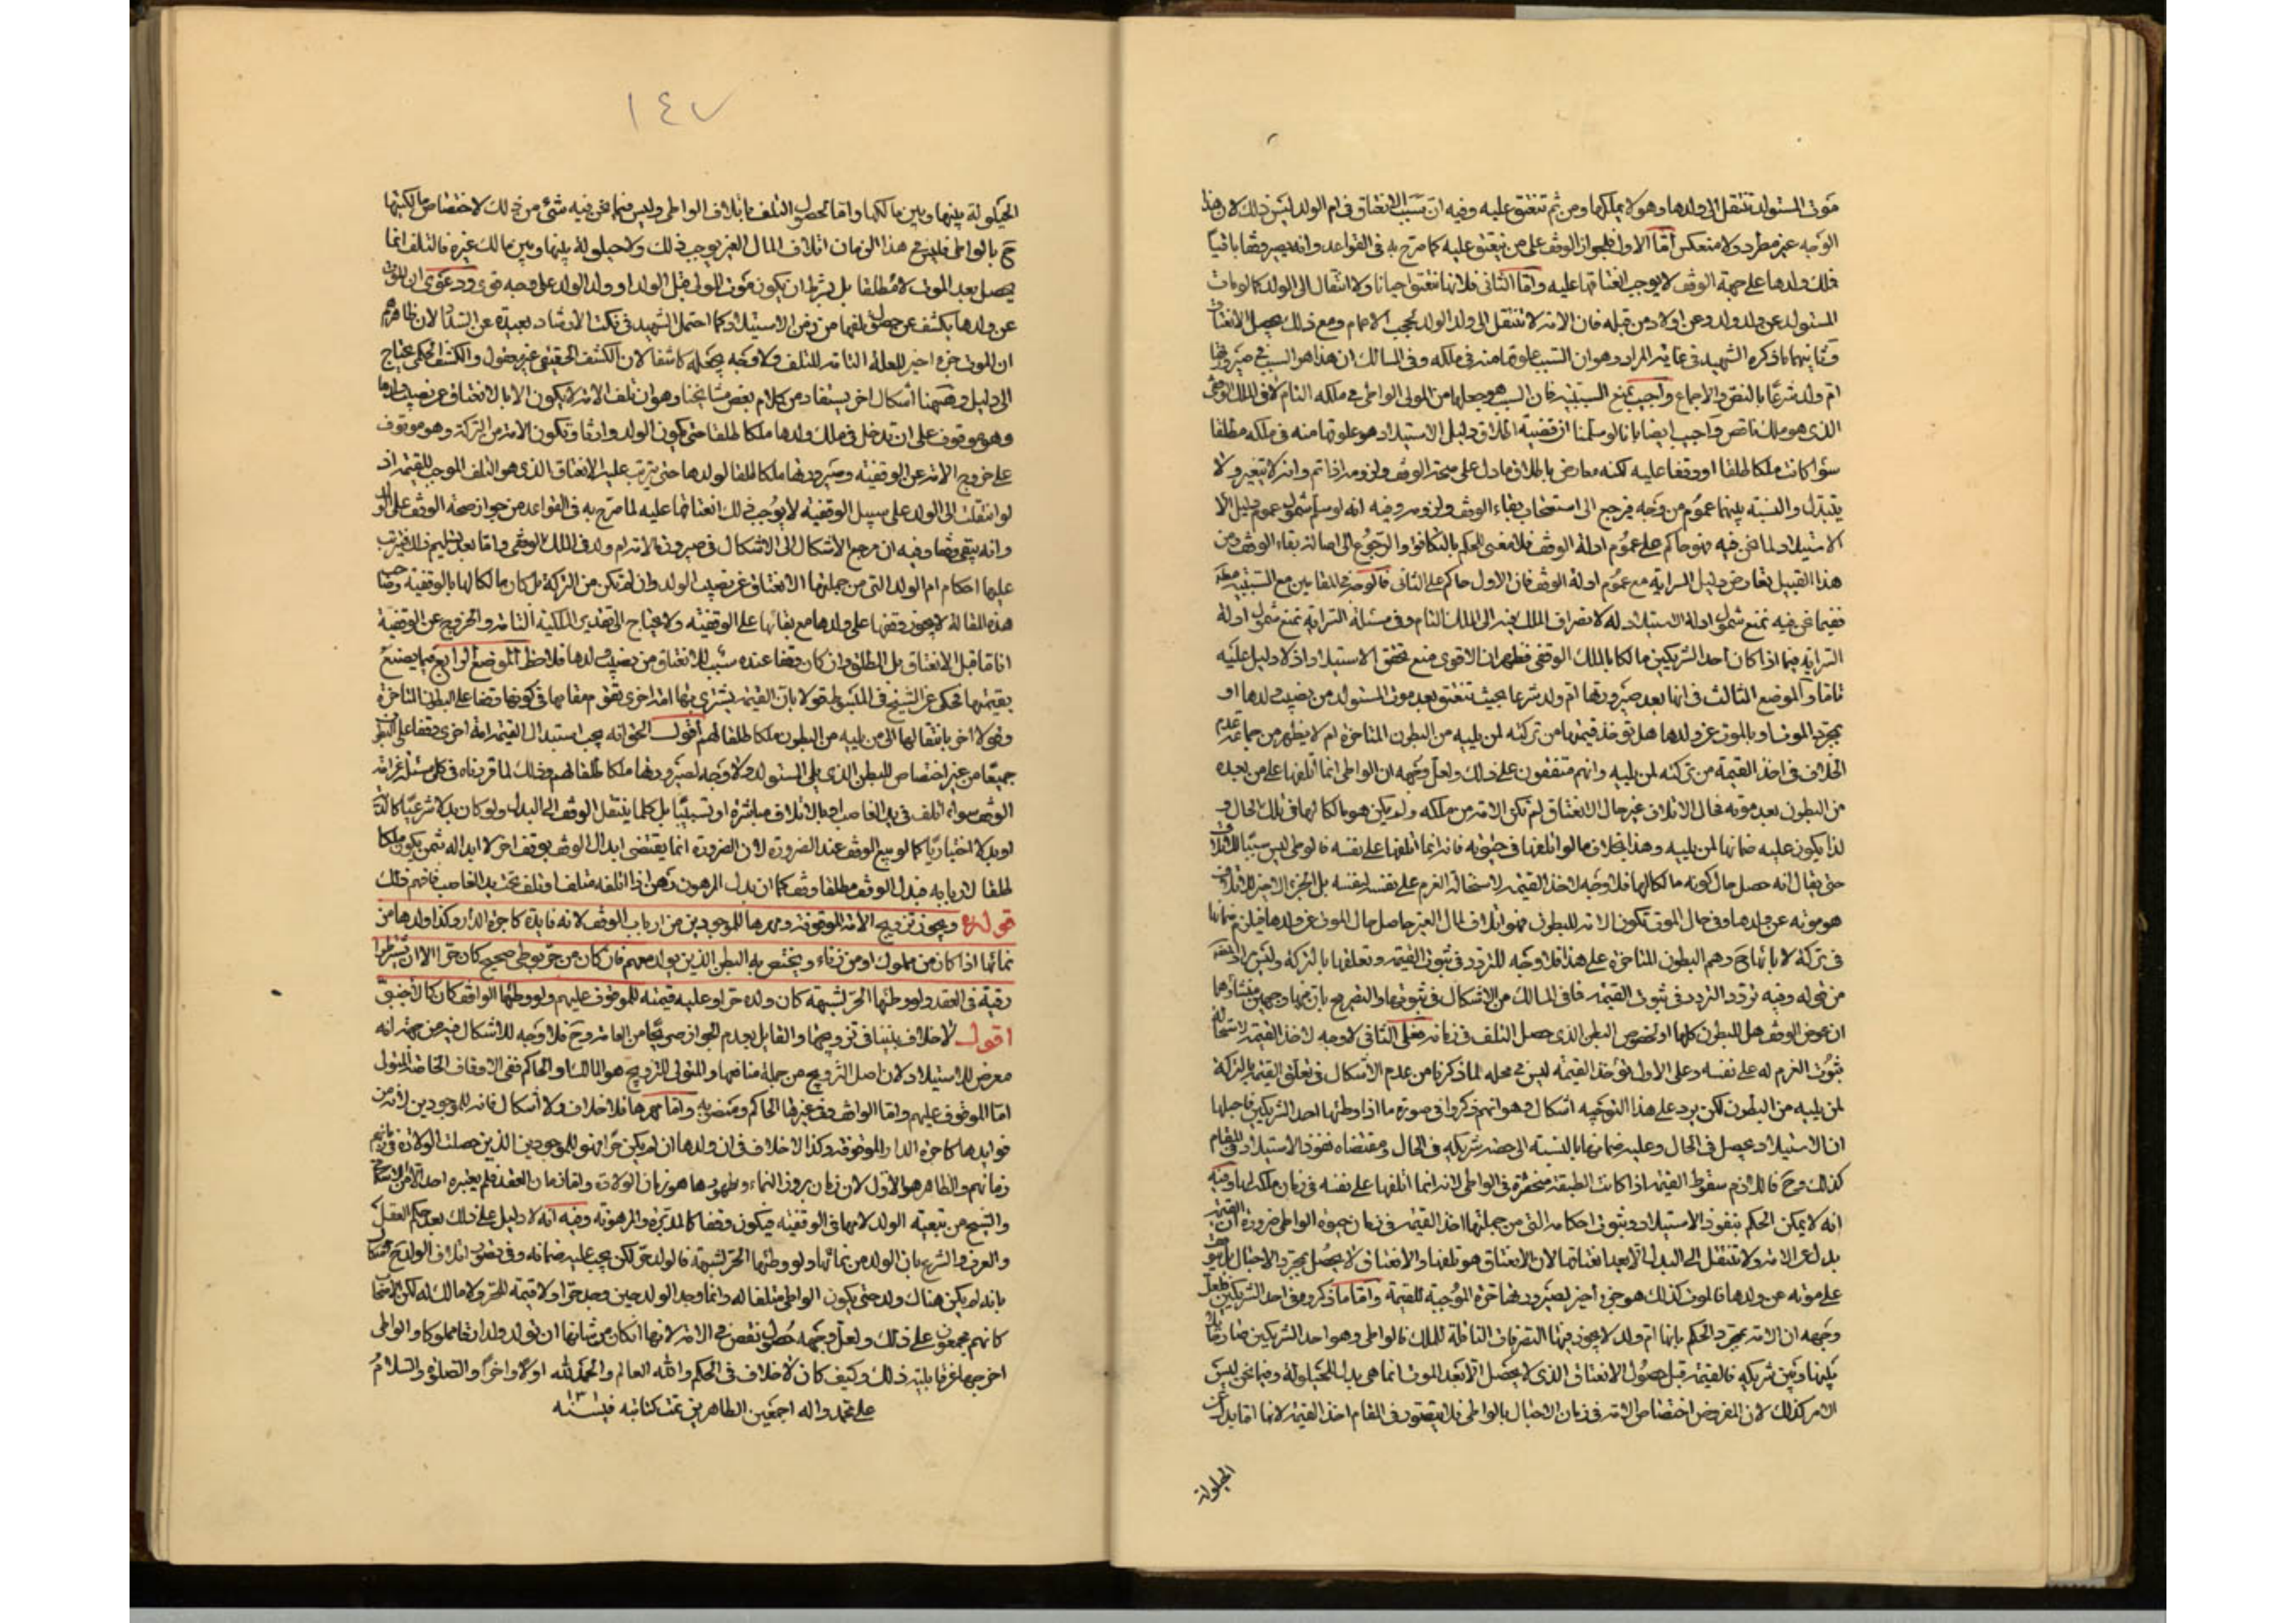 موت المستولد تنتقل الى ولدها وهو لا يملكها ومن ثم تنعتق عليه وفيه ان سبب الانعتاق في ام الولد ليس ذلك لان هذا
الوجه غير مطرد ولا منعكس اما الاول فلجواز الوقف على من ينعتق عليه كما صرح به في القواعد وانه يصير وقفا باقيا
فملك ولدها على جهة الوقف لا يوجب انعتاقها عليه واما الثاني فلانها تنعتق احيانا ولا انتقال الى الولد كما لو مات
المستولد عن ولد ولد وعن اولاد من قبله فان الامة لا تنتقل الى ولد الولد لحجب الاعمام ومع ذلك يحصل الانعتاق
وثانيهما ما ذكره الشهيد في غاية المراد وهو ان السبب علوقها منه في ملكه وفي المسالك ان هذا هو السبب في صيرورتها
ام ولد شرعا بالنص والاجماع واجيب بمنع السببية فان السبب هو حملها من المولى الواطى في ملكه التام لا في الملك الوقفي
الذي هو ملك ناقص واجيب ايضا بانا لو سلمنا ان قضية اطلاق دليل الاستيلاد هو علوقها منه في ملكه مطلقا
سواء كانت ملكا طلقا او وقفا عليه لكنه معارض باطلاق ما دل على صحة الوقف ولزومه اذا تم وانه لا يتغير ولا
يتبدل والنسبة بينهما عموم من وجه فيرجع الى استصحاب بقاء الوقف ولزومه وفيه انه لو سلم شمول عموم دليل
الاستيلاد لما نحن فيه فهو حاكم على عموم ادلة الوقف فلا معنى للحكم بالتكافؤ والرجوع الى اصالة بقاء الوقف ومن
هذا القبيل تعارض دليل السراية مع عموم ادلة الوقف فان الاول حاكم على الثاني فالوجه في المقامين مع السببية
ففيما نحن فيه نمنع شمول ادلة الاستيلاد له لانصراف الملك فيه الى الملك التام وفي مسئلة السراية نمنع شمول ادلة
السراية فيما اذا كان احد الشريكين مالكا بالملك الوقفي فظهر ان الاقوى منع تحقق الاستيلاد اذ لا دليل عليه
واما الموضع الثالث في انها بعد صيرورتها ام ولد شرعا بحيث تنعتق بعد موت المستولد من نصيب ولدها او
بمجرد الموت او بالموت عن ولدها هل تؤخذ قيمتها من تركته لمن يليه من البطون المتاخرة ام لا يظهر من جماعة عدم
الخلاف في اخذ القيمة من تركته لمن يليه وانهم متفقون على ذلك ولعل وجهه ان الواطى انما اتلفها على من بعده
من البطون بعد موته فحال الاتلاف غير حال الانعتاق لم تكن الامة من ملكه ولم يكن هو مالكا لها في تلك الحال
لذا يكون عليه ضمانها لمن يليه وهذا بخلاف ما لو اتلفها في حيوته فانه انما اتلفها على نفسه فالوطى ليس سببا للاتلاف
حتى يقال انه حصل حال كونه مالكا لها فلا وجه لاخذ القيمة لاستحالة الغرم على نفسه لنفسه بل الجزء الاخير للاتلاف
هو موته عن ولدها وفي حال الموت تكون الامة للبطون فهو اتلاف لمال الغير حاصل حال الموت عن ولدها فيلزم ضمانها
في تركته لاربابها ح وهم البطون المتاخرة على هذا فلا وجه للتردد في ثبوت القيمة وتعلقها بالتركة وليس المراد
من قوله وفيه تردد التردد في ثبوت القيمة فما في المسالك من الاشكال في ثبوتها والتصريح بان فيها وجهين منشاؤهما
ان عوض الوقف هل للبطون كلها او لخصوص البطن الذي حصل التلف في زمانه فعلى الثاني لا وجه لاخذ القيمة لاستحالة
ثبوت الغرم له على نفسه وعلى الاول تؤخذ القيمة ليس في محله لما ذكرنا من عدم الاشكال في تعلق القيمة بالتركة
لمن يليه من البطون لكن يرد على هذا التوجيه اشكال وهو انهم ذكروا في صورة ما اذا وطئها احد الشريكين فاحبلها
ان الاستيلاد يحصل في الحال وعليه ضمانها بالنسبة الى حصة شريكه في الحال ومقتضاه نفوذ الاستيلاد في المقام
كذلك وح فاللازم سقوط القيمة اذا كانت الطبقة منحصرة في الواطى لانه انما اتلفها على نفسه في زمان ملكه لها وفيه
انه لا يمكن الحكم بنفوذ الاستيلاد وثبوت احكامه التي من جملتها اخذ القيمة في زمان حيوة الواطى ضرورة ان القيمة
بدل عن الامة ولا تنتقل الى البدل الا بعد انعتاقها لان الانعتاق هو تلفها والانعتاق لا يحصل بمجرد الاحبال بل يتوقف
على موته عن ولدها فالموت كذلك هو جزء اخير لصيرورتها حرة الموجبة للقيمة واما ما ذكروه في احد الشريكين فلعل
وجهه ان الامة بمجرد الحكم بانها ام ولد لا يجوز فيها التصرفات الناقلة للملك فالواطى وهو احد الشريكين صار حائلا
بينها وبين شريكه فالقيمة قبل حصول الانعتاق الذي لا يحصل الا بعد الموت انما هي بدل للحيلولة وفيما نحن ليس
الامر كذلك لان المفروض اختصاص الامة في زمان الاحبال بالواطى فلا يتصور في المقام اخذ القيمة لانها اما بدل عن
الحيلولة
١٤٧
الحيلولة بينها وبين مالكها واما لحصول التلف باتلاف الواطى وليس فيما نحن فيه شئ من ذلك لاختصاص مالكيتها
ح بالواطى فليس في هذا الزمان اتلاف لمال الغير يوجب ذلك ولا حيلولة بينها وبين مالك غيره فالتلف انما
يحصل بعد الموت لا مطلقا بل بشرط ان يكون موت المولى قبل الولد او ولد الولد على وجه قوي ودعوى ان الموت
عن ولدها يكشف عن حصول تلفها من زمن الاستيلاد كما احتمل الشهيد في نكت الارشاد بعيدة عن السداد لان ظاهرهم
ان الموت جزء اخير للعلة التامة للتلف ولا وجه لجعله كاشفا لان الكشف الحقيقي غير معقول والكشف الحكمي يحتاج
الى دليل وهيهنا اشكال اخر يستفاد من كلام بعض مشايخنا وهو ان تلف الامة لا يكون الا بالانعتاق من نصيب ولدها
وهو موقوف على ان تدخل في ملك ولدها ملكا طلقا حتى يكون الولد وارثا وتكون الامة من التركة وهو موقوف
على خروج الامة عن الوقفية وصيرورتها ملكا طلقا لولدها حتى يترتب عليه الانعتاق الذي هو التلف الموجب للقيمة اذ
لو انتقلت الى الولد على سبيل الوقفية لا يوجب ذلك انعتاقها عليه لما صرح به في القواعد من جواز صحة الوقف على
وانه يبقى وقفا وفيه ان مرجع الاشكال الى الاشكال في صيرورة الامة ام ولد في الملك الوقفي واما بعد تسليم ذلك فيترتب
عليها احكام ام الولد التي من جملتها الانعتاق من نصيب الولد وان لم تكن من التركة بل كان مالكا لها بالوقفية وصاحب
هذه المقالة لا يجوز وقفها على ولدها مع بقائها على الوقفية ولا يحتاج الى تقدير الملكية التامة والخروج عن الوقفية
انا ما قبل الانعتاق بل المطلق وان كان وقفا عنده سبب للانعتاق من نصيب ولدها فلاحظ الموضع الرابع فيما يصنع
بقيمتها فحكي عن الشيخ في المبسوط قولا بان القيمة يشترى بها امة اخرى تقوم مقامها في كونها وقفا على البطون المتاخرة
وقولا اخر بانتقالها الى من يليه من البطون ملكا طلقا لهم اقول الحق انه يجب استبدال القيمة امة اخرى وقفا على البطون
جميعا من غير اختصاص للبطن الذي يلي المستولد ولا وجه لصيرورتها ملكا طلقا لهم وذلك لما قررناه في كل مسئلة غرامة
الوقف سواء اتلف في يد الغاصب او بالاتلاف مباشرة او تسبيبا بل كلما ينتقل الوقف الى البدل ولو كان بدلا شرعيا
او بدلا اختياريا كما لو بيع الوقف عند الضرورة لان الضرورة انما يقتضي ابدال الوقف بوقف اخر لا ابداله بثمن يكون ملكا
طلقا لاربابه فبدل الوقف مطلقا وقف كما ان بدل المرهون رهن اذا اتلفه متلف او تلف تحت يد الغاصب فافهم ذلك
قوله ره ويجوز تزويج الامة الموقوفة ومهرها للموجودين من ارباب الوقف لانه فايدة كاجرة الدار وكذا ولدها من
نمائها اذا كان من مملوك او من زناء ويختص به البطن الذين يولد معهم فان كان من حر بوطى صحيح كان حرا الا ان يشترطوا
رقيته في العقد ولو وطئها الحر بشبهة كان ولده حرا وعليه قيمته للموقوف عليهم ولو وطئها الواقف كان كالاجنبي
اقول لا خلاف بيننا في تزويجها والقايل بعدم الجواز صريحا من العامة وح فلا وجه للاشكال فيه من جهة انه
معرض للاستيلاد لان اصل التزويج من جملة منافعها والمتولى للتزويج هو المالك او الحاكم ففي الاوقاف الخاصة المتولى
اما الموقوف عليهم واما الواقف وفي غيرها الحاكم ومنصوبه واما مهرها فلا خلاف ولا اشكال فانه للموجودين لانه من
فوايدها كاجرة الدار الموقوفة وكذا لا خلاف في ان ولدها ان لم يكن حرا فهو للموجودين الذين حصلت الولادة في
زمانهم والظاهر هو الاول لان زمان بروز النماء وظهورها هو زمان الولادة واما زمان العقد فلم يعتبره احد
والشيخ من تبعية الولد لامها في الوقفية فيكون وقفا كالمدبرة والمرهونة وفيه انه لا دليل على ذلك بعد حكم العقل
والعرف والشرع بان الولد من نمائها ولو وطئها الحر بشبهة فالولد حر لكن يجب عليه ضمانه وفي تصور اتلاف الولد ح اشكال
بانه لم يكن هناك ولد حتى يكون الواطى متلفا له وانما وجد الولد حين وجد حرا ولا قيمة للحر ولا مالك له لكن
كانهم مجمعون على ذلك ولعل وجهه حصول نقص في الامة لانها كان من شانها ان تولد ولدا مملوكا والواطى
اخرجها عن قابلية ذلك وكيف كان لا خلاف في الحكم والله العالم والحمد لله اولا واخرا والصلوة والسلام
على محمد واله اجمعين الطاهرين تمت كتابته في سنه